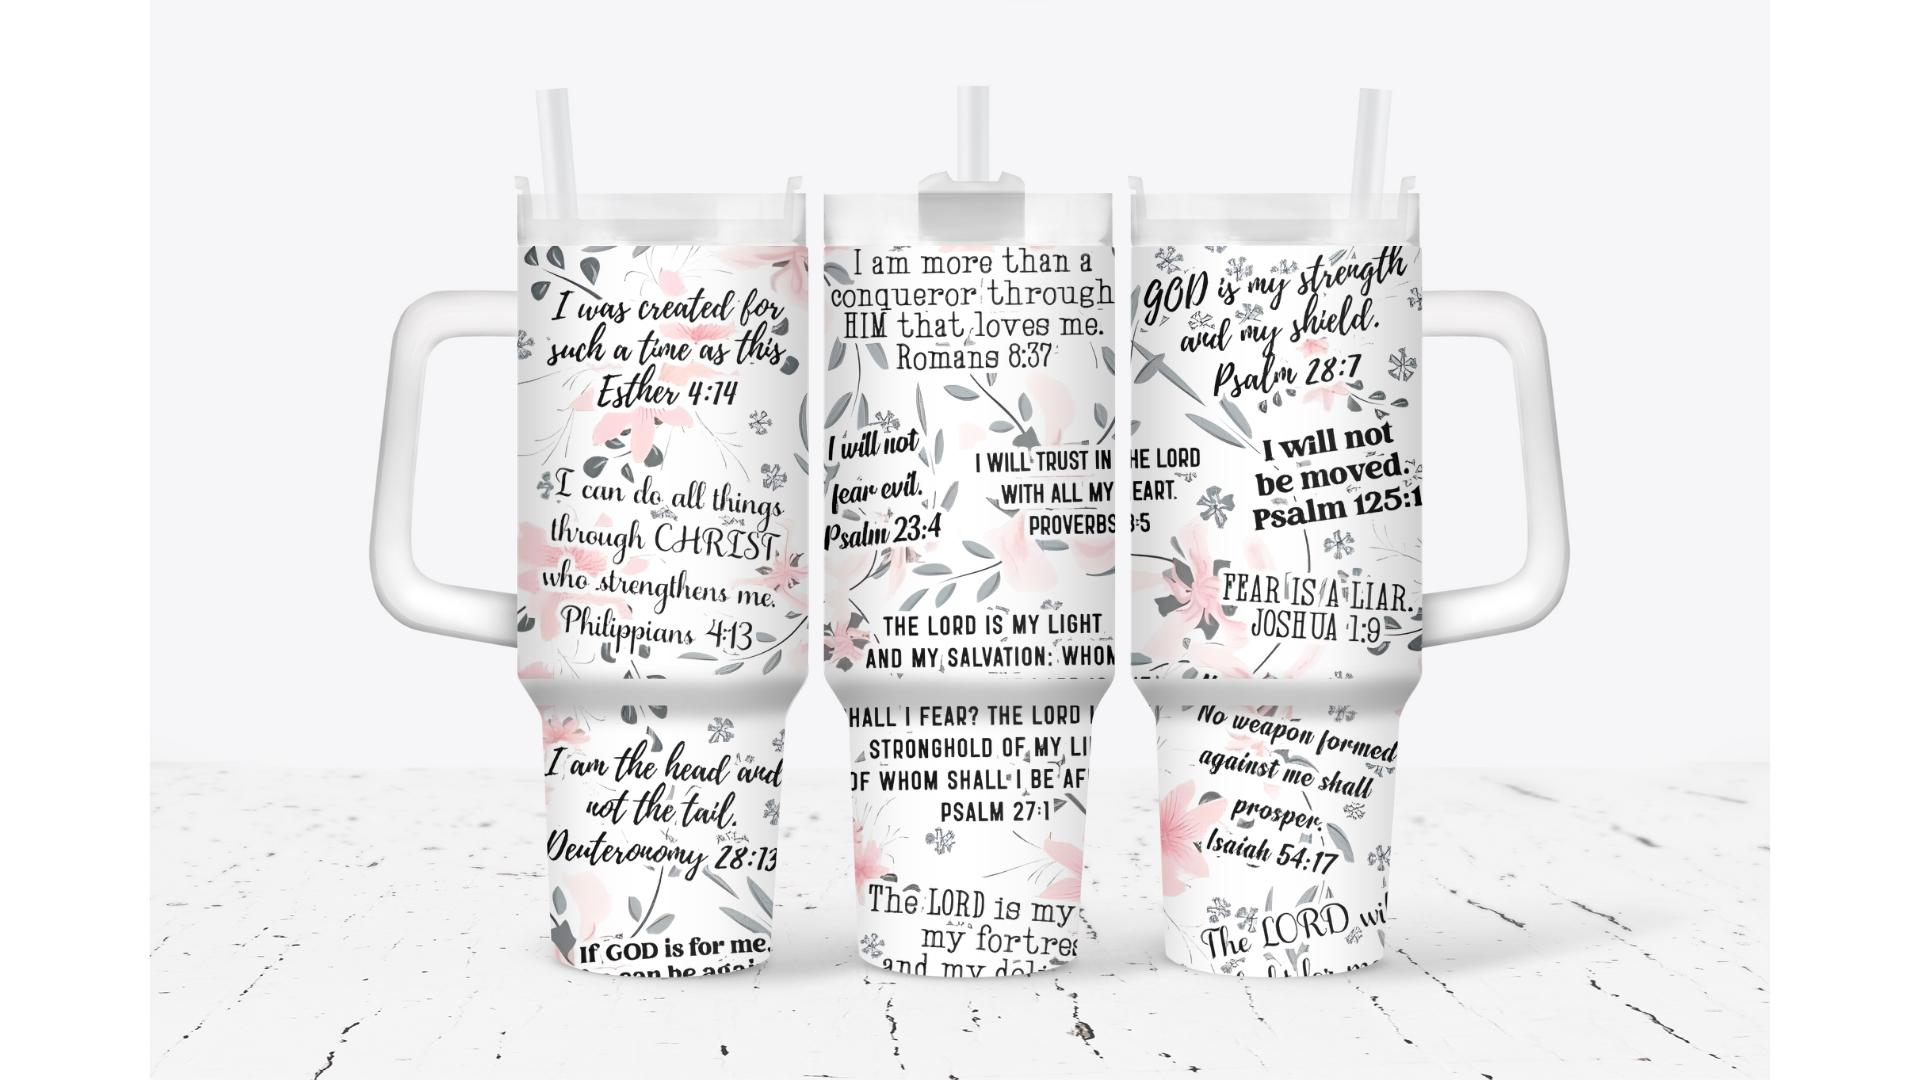 I was created for
such a time as this
Esther 4:14
I can do all things
through CHRIST
who strengthens me.
Philippians 4:13
I am the head and
not the tail.
Deuteronomy 28:13
If GOD is for me.
can be
I am more than a
conqueror through
HIM that loves me.
Romans 8:37
I will not
fear evil.
Psalm 23:4
I WILL TRUST IN
WITH ALL MY
PROVERBS
THE LORD IS MY LIGHT
AND MY SALVATION: WHOM
HALL I FEAR? THE LORD
STRONGHOLD OF MY LI
OF WHOM SHALL I BE AF
PSALM 27:1
The LORD is my
my fortres
and my
GOD is my strength
and my shield.
Psalm 28:7
HE LORD
EART.
3:5
I will not
be moved.
Psalm 125:1
FEAR IS A LIAR.
JOSHUA 1:9
No weapon formed
against me shall
prosper.
Isaiah 54:17
The LORD wi